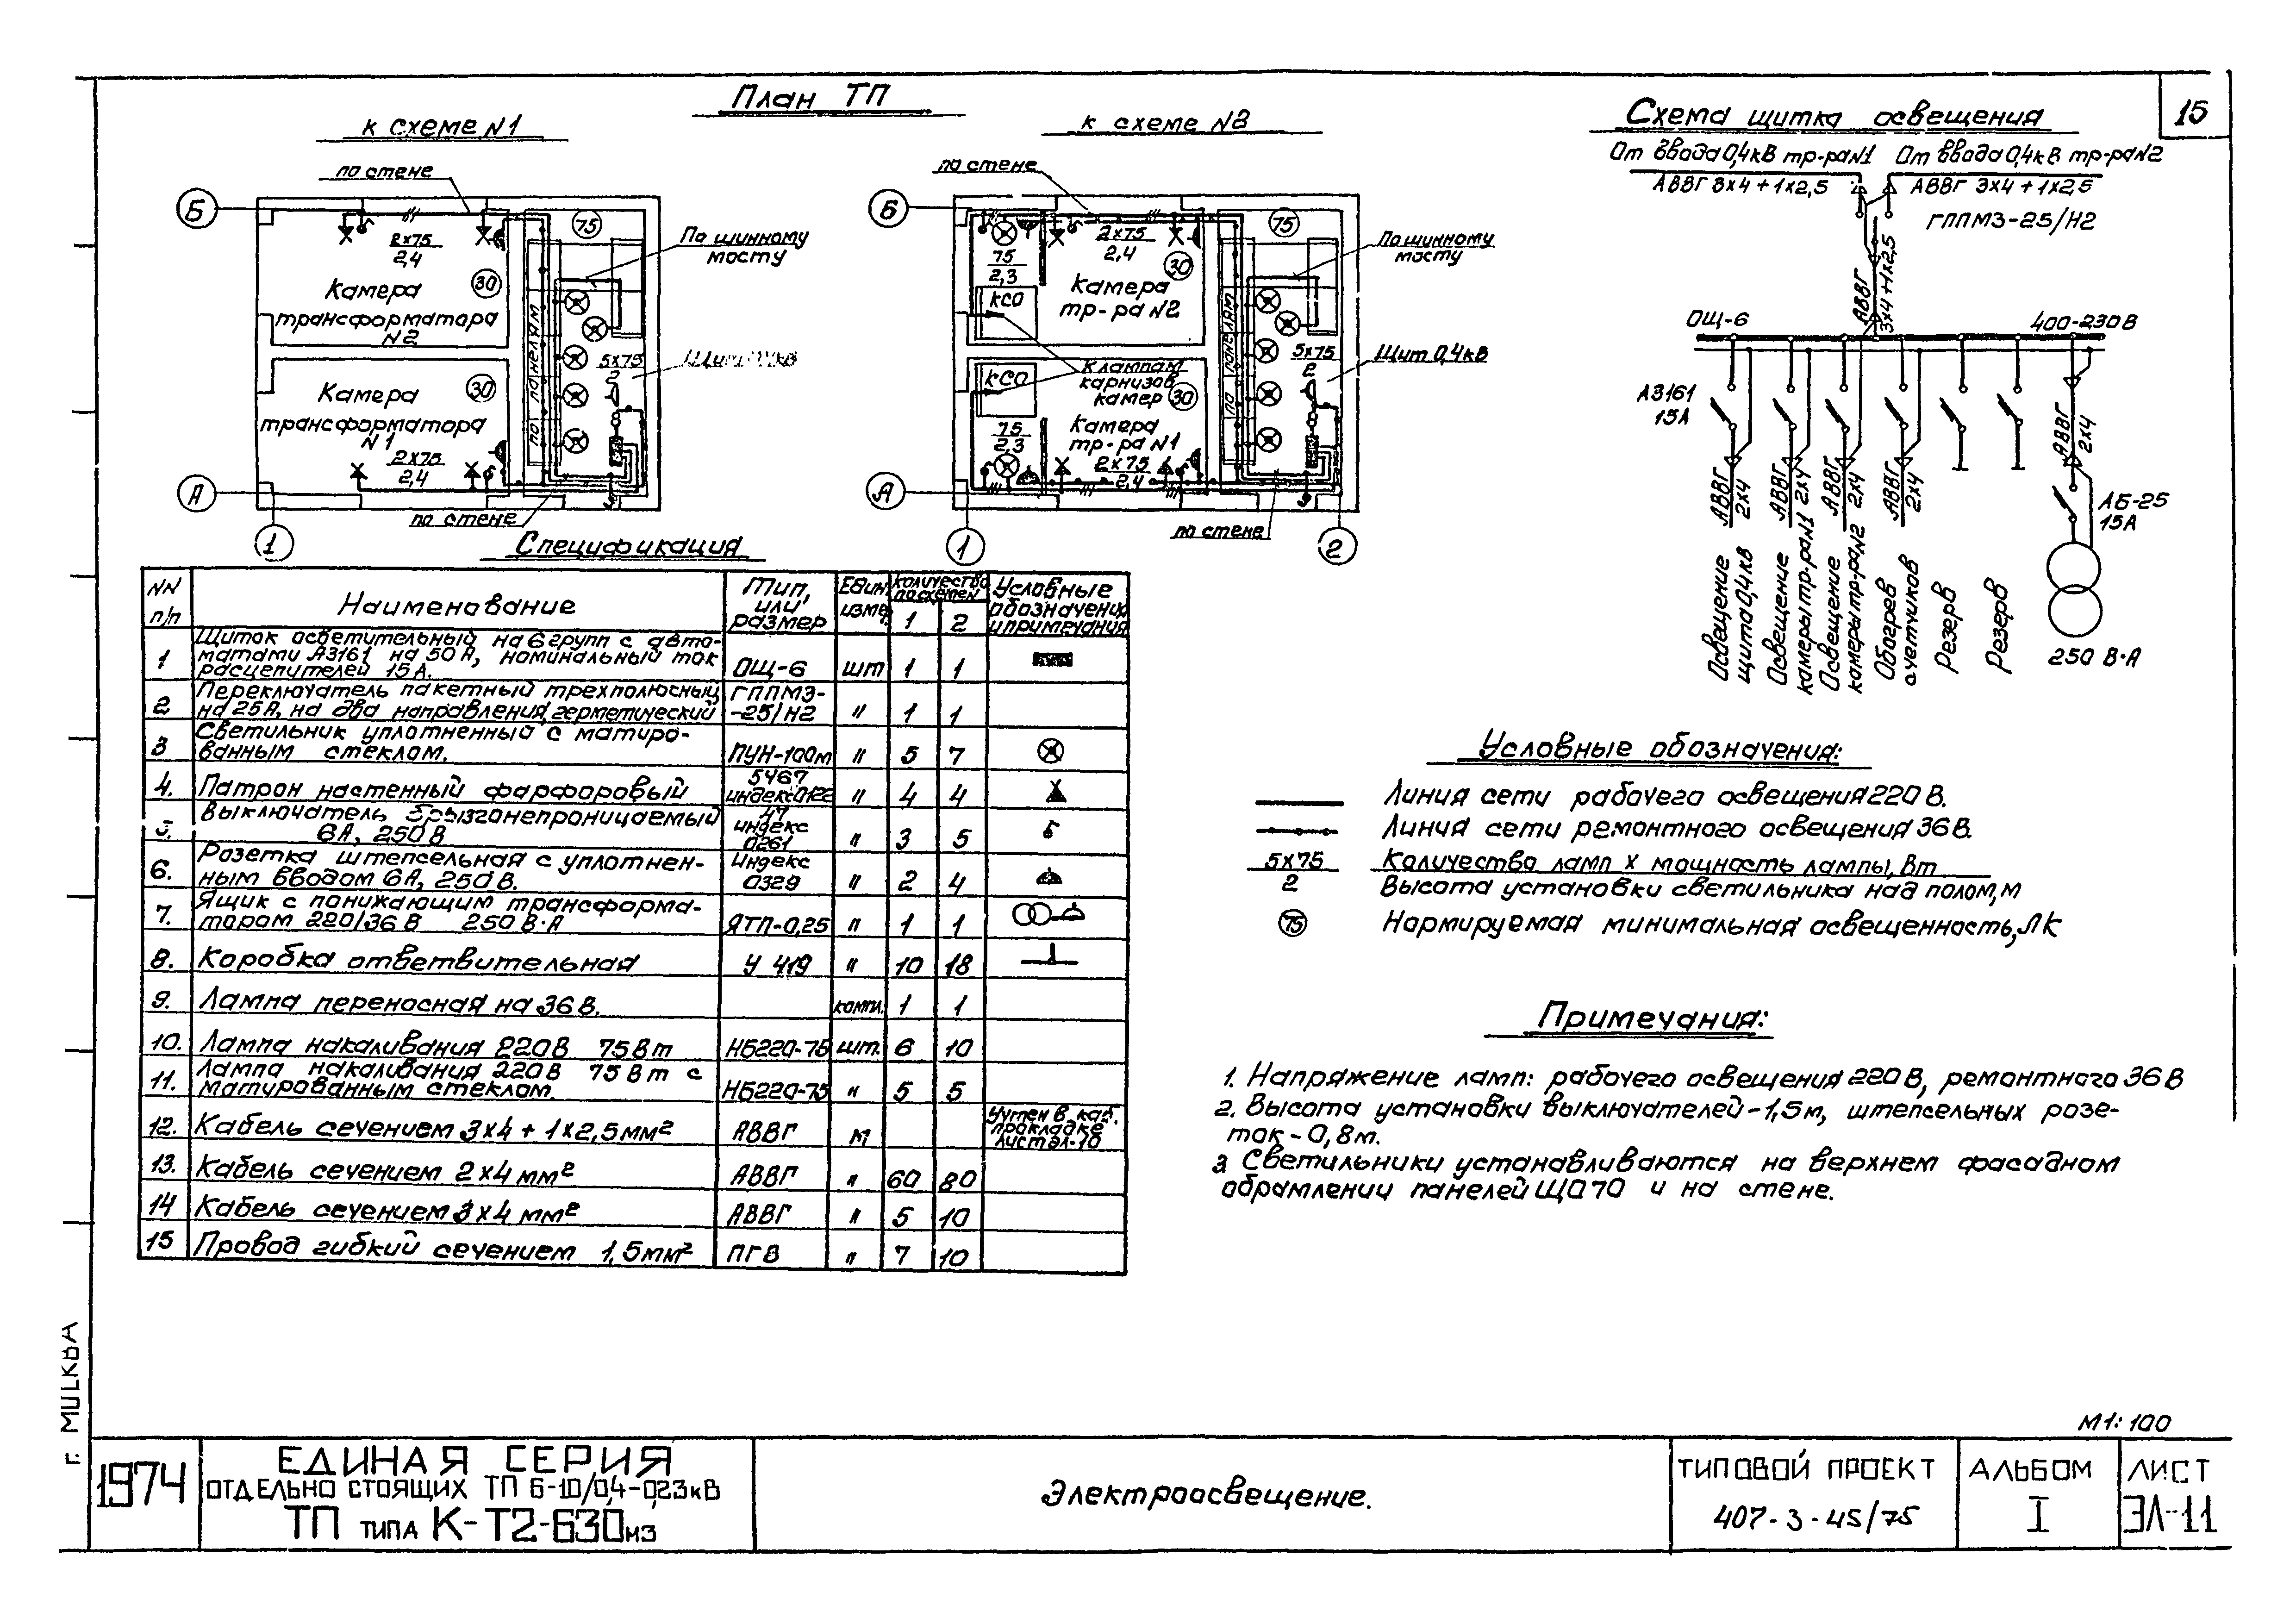 15
План ТП
к схеме N1
по стене
Б
75
По шинному
мосту
2х75
2,4
30
Камера
трансформатора
N2
по панелям
5х75
2
30
Камера
трансформатора
N1
2х75
2,4
А
по стене
1
к схеме N2
по стене
Б
75
По шинному
мосту
75
2,3
2х75
2,4
30
Камера
тр-ра N2
КСО
по панелям
5х75
2
Щит 0,4кВ
К лампам
карнизов
камер
30
КСО
Камера
тр-ра N1
75
2,3
2х75
2,4
А
по стене
1
2
Схема щитка освещения
От ввода 0,4кВ тр-ра N1
От ввода 0,4кВ тр-ра N2
АВВГ 3х4+1х2,5
АВВГ 3х4+1х2,5
ГППМ3-25/Н2
АВВГ
3х4+1х2,5
ОЩ-6
400-230В
А3161
15А
АВВГ
2х4
АВВГ 2х4
АВВГ 2х4
АВВГ
2х4
АВВГ
2х4
АБ-25
15А
250 В·А
Освещение
щита 0,4кВ
Освещение
камеры тр-ра N1
Освещение
камеры тр-ра N2
Обогрев
счетчиков
Резерв
Резерв
Спецификация
NN п/п Наименование Тип, или размер Един. изме. Количество по схемам 1 2 Условные обозначения и примечания
1 Щиток осветительный на 6 групп с автоматами А3161 на 50А, номинальный ток расцепителей 15А. ОЩ-6 шт 1 1
2 Переключатель пакетный трехполюсный на 25А, на два направления, герметический ГППМ3--25/Н2 " 1 1
3 Светильник уплотненный с матированным стеклом. ПУН-100м " 5 7
4. Патрон настенный фарфоровый 5467 индекс 0122 " 4 4
5. Выключатель брызгонепроницаемый 6А, 250В 47 индекс 0261 " 3 5
6. Розетка штепсельная с уплотненным вводом 6А, 250В. Индекс 0329 " 2 4
7. Ящик с понижающим трансформатором 220/36В 250В·А ЯТП-0,25 " 1 1
8. Коробка ответвительная У 419 " 10 18
9. Лампа переносная на 36В. компл. 1 1
10. Лампа накаливания 220В 75Вт НБ220-75 шт. 6 10
11. Лампа накаливания 220В 75Вт с матированным стеклом. НБ220-75 " 5 5
12. Кабель сечением 3х4+1х2,5мм² АВВГ м Учтен в каб. прокладке лист ЭЛ-10
13. Кабель сечением 2х4мм² АВВГ " 60 80
14 Кабель сечением 3х4мм² АВВГ " 5 10
15 Провод гибкий сечением 1,5мм² ПГВ " 7 10
Условные обозначения:
Линия сети рабочего освещения 220В.
Линия сети ремонтного освещения 36В.
5х75 Количество ламп х мощность лампы, Вт
2 Высота установки светильника над полом, м
75 Нормируемая минимальная освещенность, ЛК
Примечания:
1. Напряжение ламп: рабочего освещения 220В, ремонтного 36В
2. Высота установки выключателей-1,5м, штепсельных розе-
ток-0,8м.
3 Светильники устанавливаются на верхнем фасадном
обрамлении панелей ЩО70 и на стене.
М1:100
1974
ЕДИНАЯ СЕРИЯ
ОТДЕЛЬНО СТОЯЩИХ ТП 6-10/0,4-0,23кВ
ТП ТИПА К-Т2-630М3
Электроосвещение.
ТИПОВОЙ ПРОЕКТ
407-3-45/75
АЛЬБОМ
I
ЛИСТ
ЭЛ-11